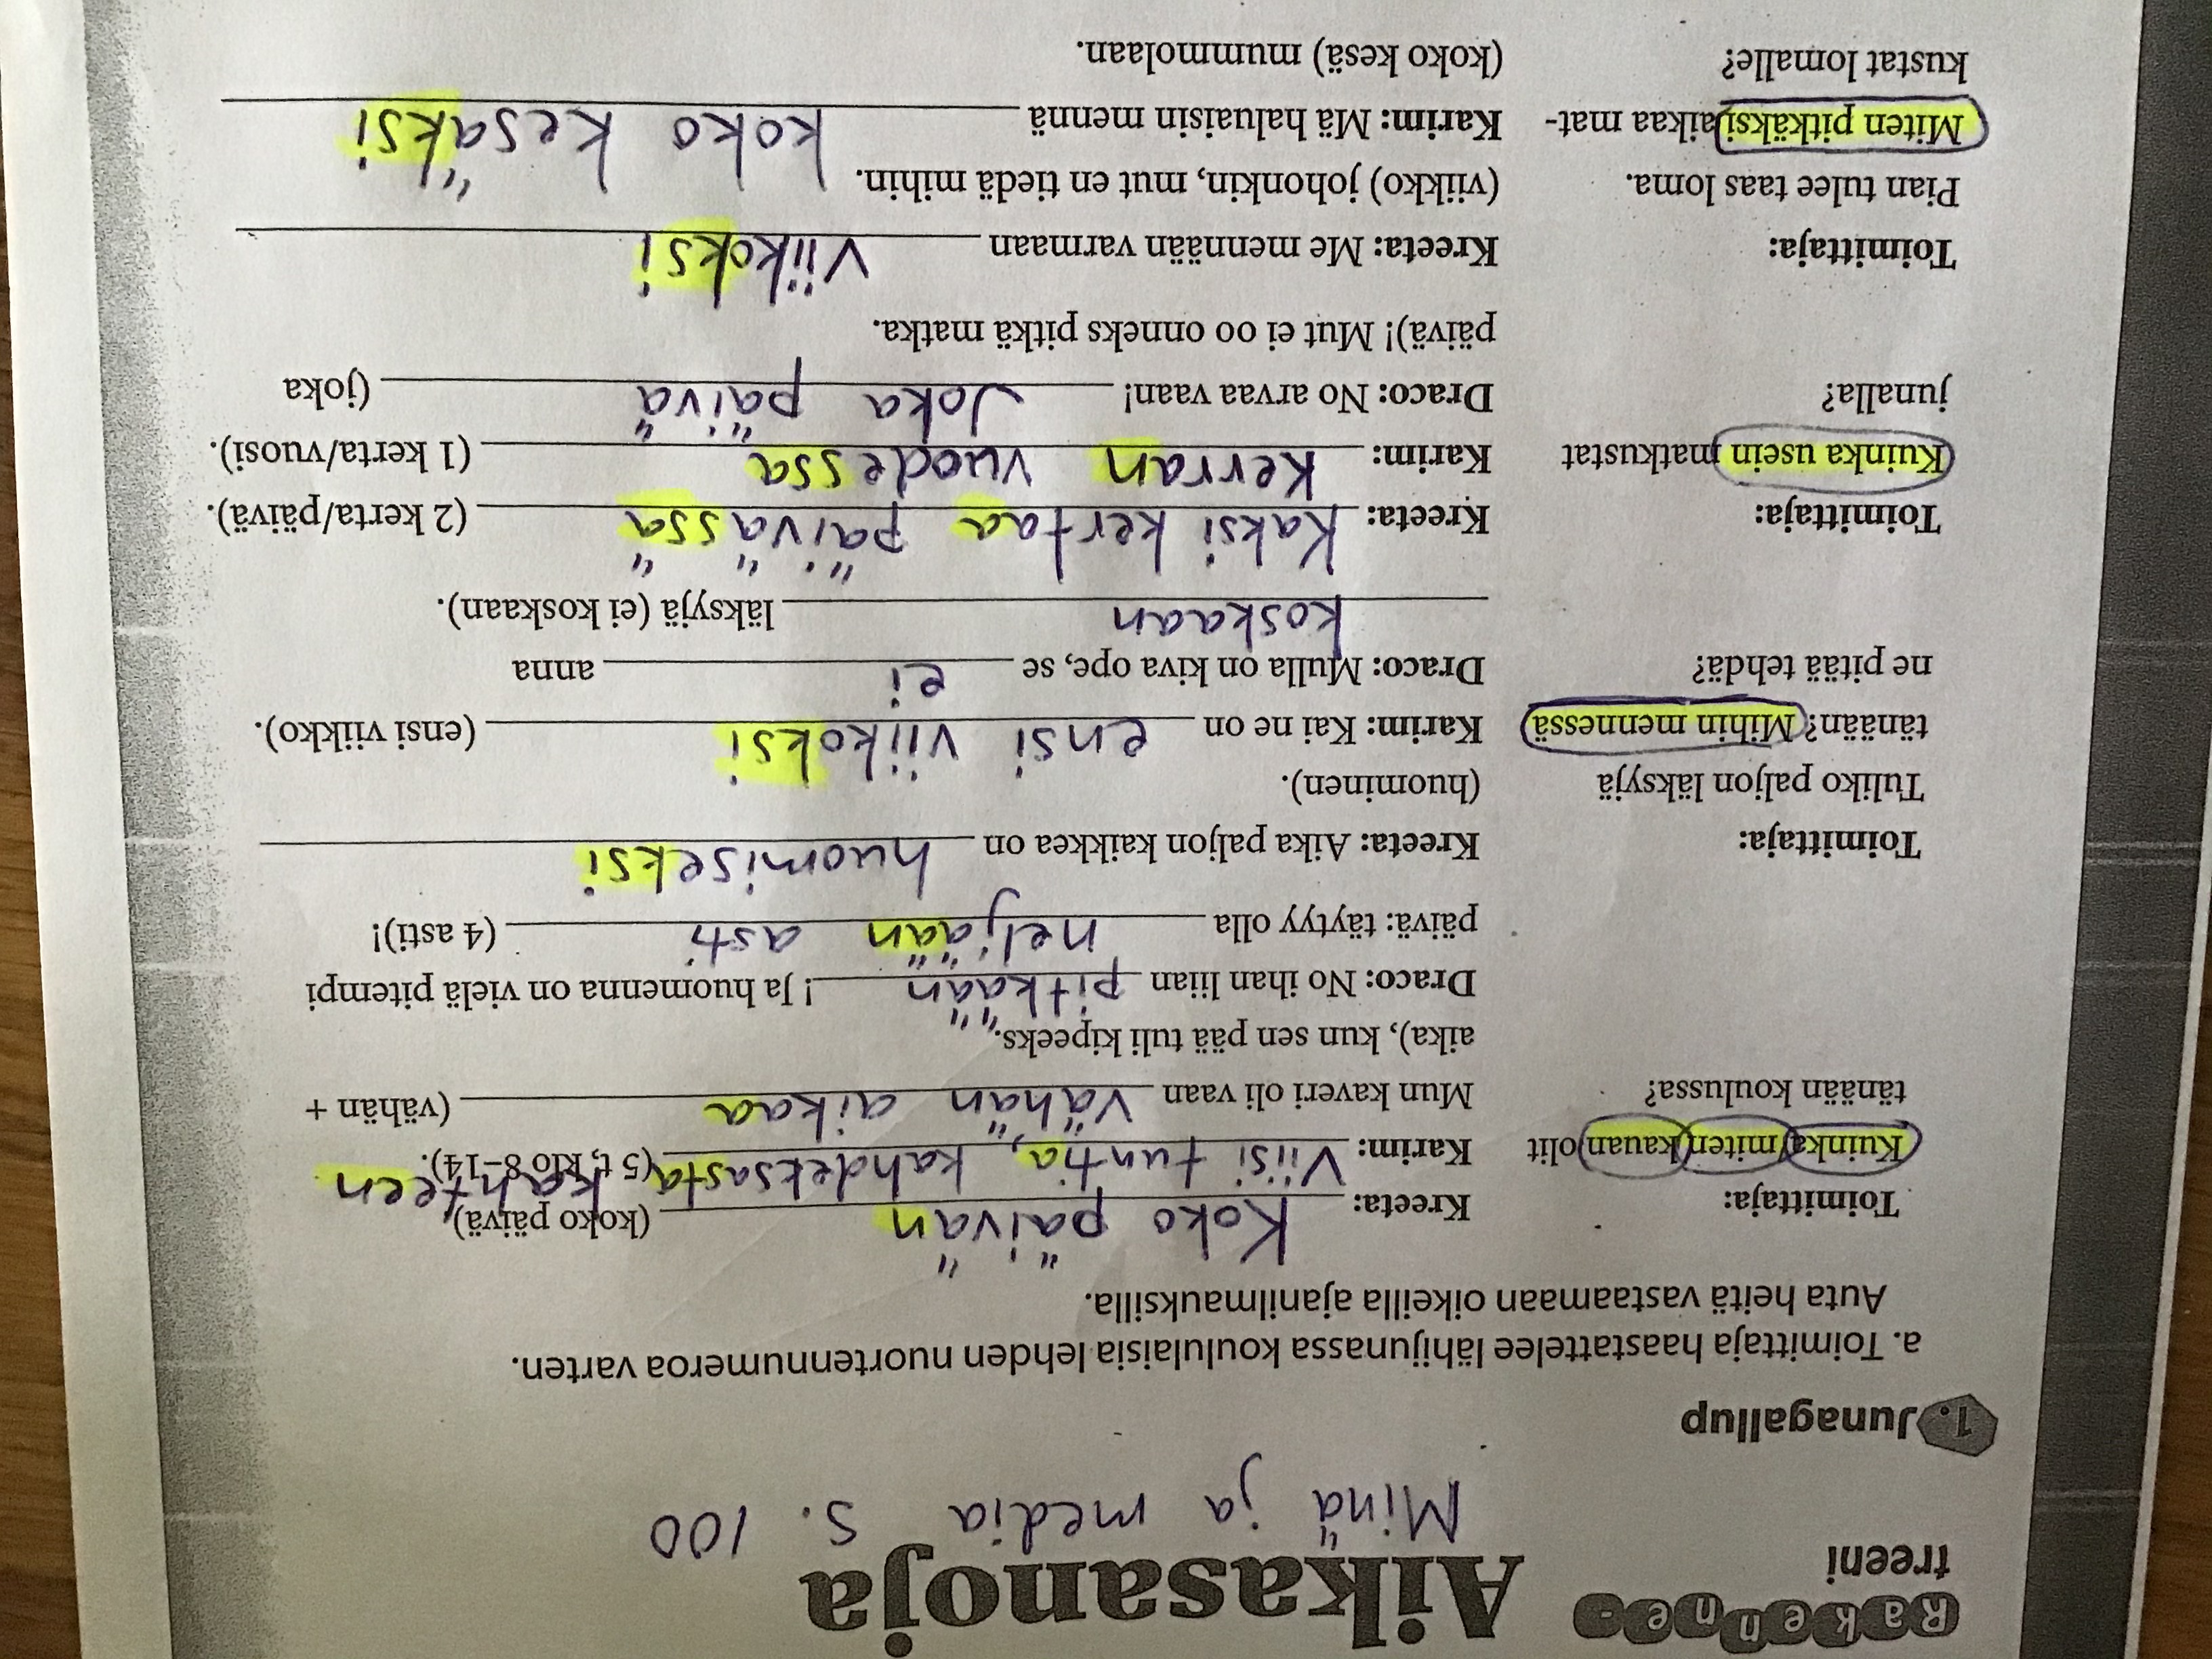 Rakenne-
treeni
Aikasanoja
Minä ja media s. 100
1. Junagallup
a. Toimittaja haastattelee lähijunassa koululaisia lehden nuortennumeroa varten.
Auta heitä vastaamaan oikeilla ajanilmauksilla.
Toimittaja:
Kuinka/miten kauan olit
tänään koulussa?
Kreeta: Koko päivän (koko päivä)
Karim: Viisi tuntia, kahdeksasta kahteen (5 t, klo 8–14).
Mun kaveri oli vaan vähän aikaa (vähän +
aika), kun sen pää tuli kipeeks.
Draco: No ihan liian pitkään! Ja huomenna on vielä pitempi
päivä: täytyy olla neljään asti (4 asti)!
Toimittaja:
Tuliko paljon läksyjä
tänään? Mihin mennessä
ne pitää tehdä?
Kreeta: Aika paljon kaikkea on huomiseksi
(huominen).
Karim: Kai ne on ensi viikoksi (ensi viikko).
Draco: Mulla on kiva ope, se ei anna
koskaan läksyjä (ei koskaan).
Toimittaja:
Kuinka usein matkustat
junalla?
Kreeta: Kaksi kertaa päivässä (2 kerta/päivä).
Karim: Kerran vuodessa (1 kerta/vuosi).
Draco: No arvaa vaan! Joka päivä (joka
päivä)! Mut ei oo onneks pitkä matka.
Toimittaja:
Pian tulee taas loma.
Miten pitkäksi aikaa mat-
kustat lomalle?
Kreeta: Me mennään varmaan viikoksi
(viikko) johonkin, mut en tiedä mihin.
Karim: Mä haluaisin mennä koko kesäksi
(koko kesä) mummolaan.